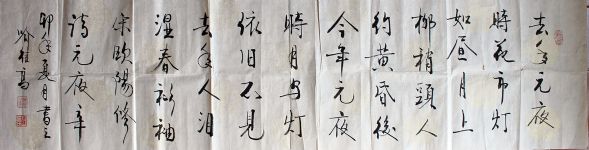 去年元夜
時花市灯
如昼月上
柳梢頭人
约黄昏後
今年元夜
時月与灯
依旧不見
去年人泪
湿春衫袖
宋欧陽修
詩元夜辛
卯年夏月書之